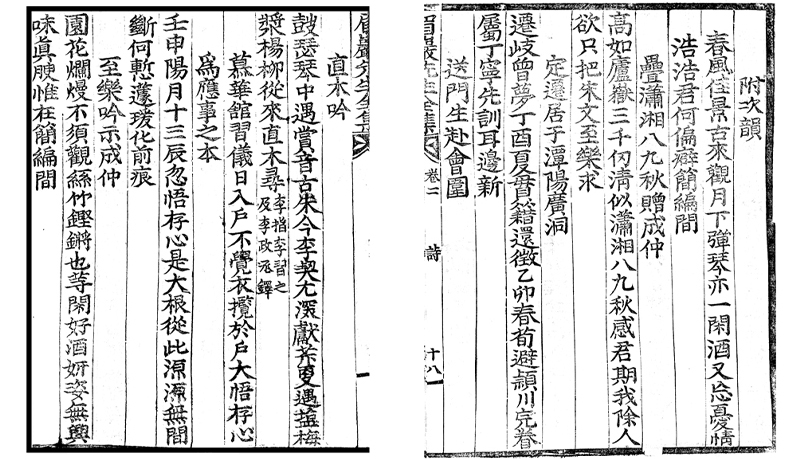 附次韻
春風佳景古來觀月下彈琴亦一閑酒又忘憂情
浩浩君何偏癖簡編間
疊瀟湘八九秋贈成仲
高如廬嶽三千仞淸似瀟湘八九秋感君期我除人
欲只把朱文至樂求
定遷居于潭陽廣洞
遷歧曾夢丁酉夏籍還徵乙卯春荀避潁川完眷
屬丁寧先訓耳邊新
送門生赴會圍
眉巖先生全集 卷二 詩 十八
眉巖先生全集
直木吟
鼓瑟琴中遇賞音古朱今李契尤深獻芹夏遇塩梅
漿楊柳從來直木尋李楷李習之
及李政丞鐸
慕華館習儀日入戶不覺衣攬於戶大悟存心
爲應事之本
壬申陽月十三辰忽悟存心是大根從此源源無間
斷何慙蘧瑗化前痕
至樂吟示成仲
園花爛熳不須觀絲竹鏗鏘也等閑好酒姸姿無興
味眞腴惟在簡編間